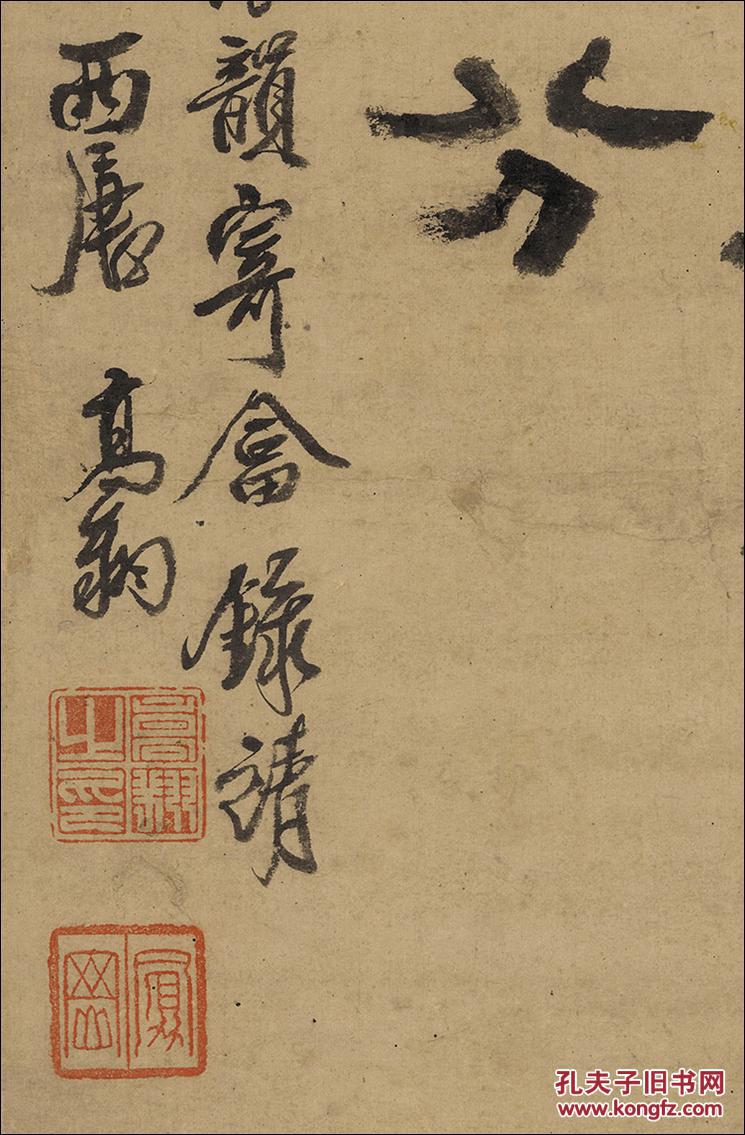 分
韻寄畣錄請
西
高翔
高翔之印
鳳岡
孔夫子旧书网
www.kongfz.com